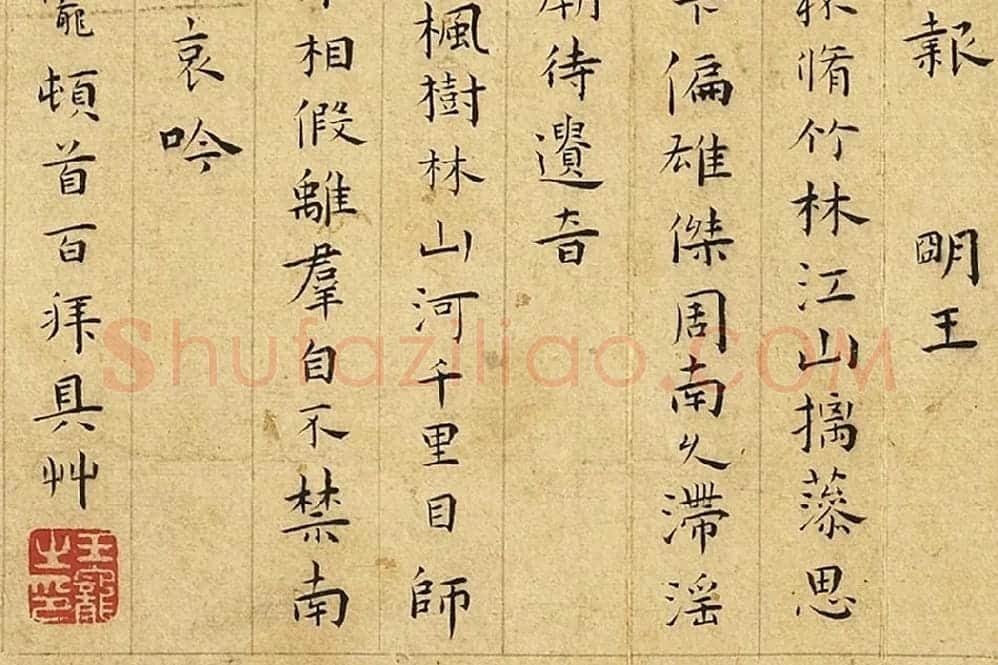 報 明王
脩竹林江山摛藻思
偏雄傑周南久滯淫
待遺音
楓樹林山河千里目師
相假離羣自不禁南
哀吟
寵頓首百拜具艸
王寵之印
Shufaziliao.COM